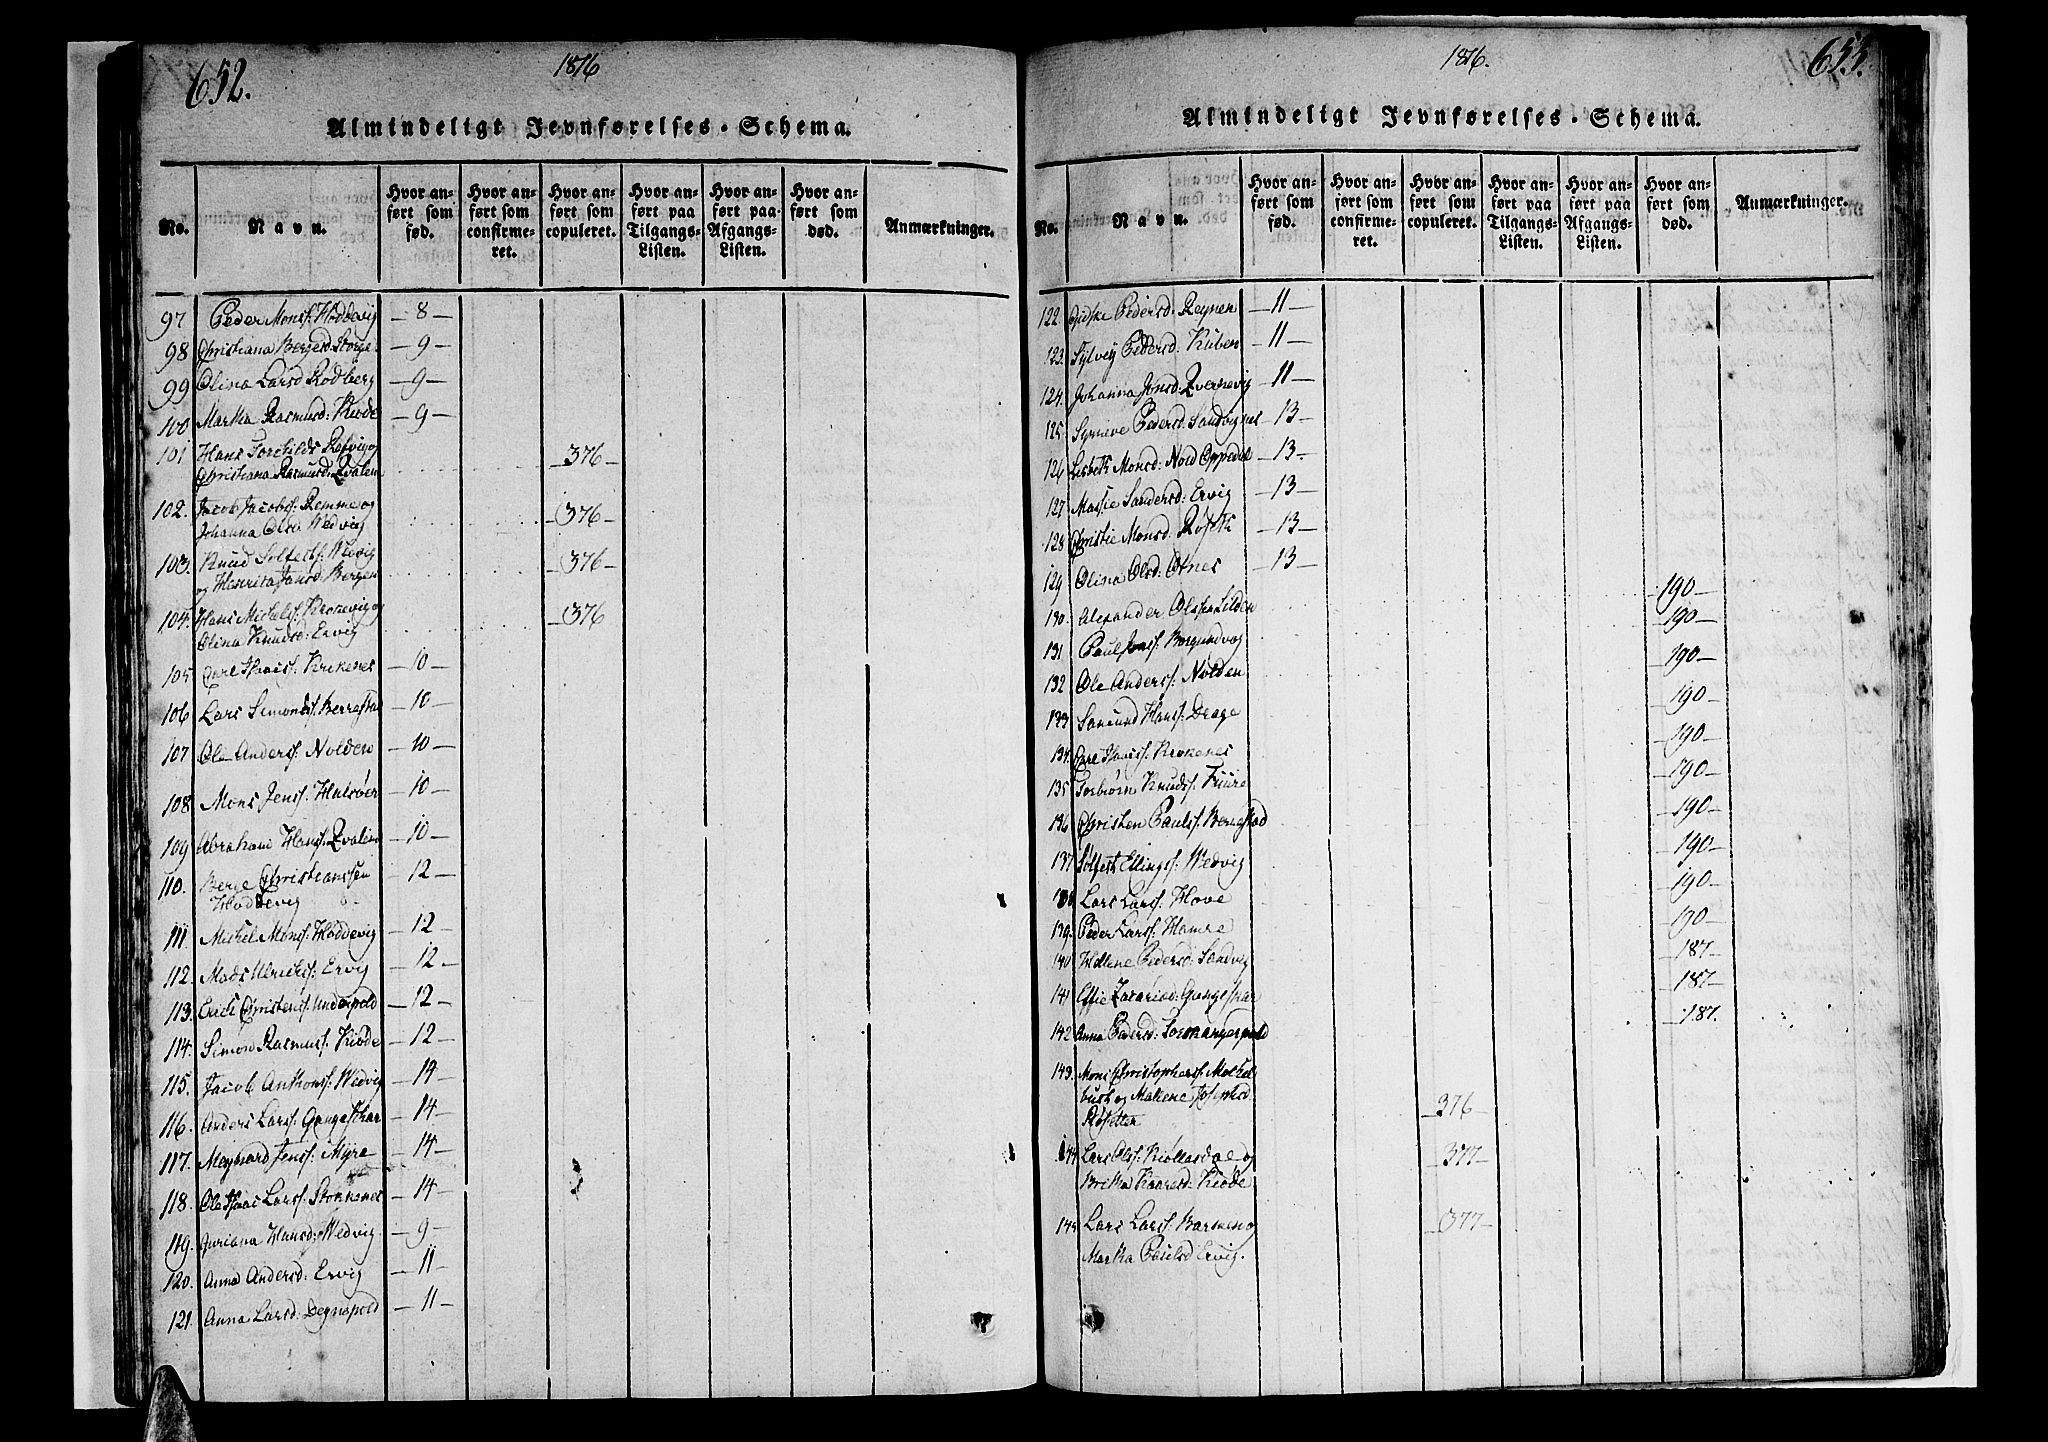 652.
1816
Almindeligt Jevnførelses-Schema.
No.
Navn.
Hvor anført som fød.
Hvor anført som confirmeret.
Hvor anført som copuleret.
Hvor anført paa Tilgangs-Listen.
Hvor anført paa Afgangs-Listen.
Hvor anført som død.
Anmærkninger.
97 Peder Monss: Hoddevig –8–
98 Christiana Bergesd: –9–
99 Olina Larsd Rodberg –9–
100 Martha Rasmusd: Kiøde –9–
101 Hans Torchilds Refvig og
Christiana Rasmusd: Qvalem –376–
102. Jacob Jacobs: Remme og –376–
Johanna Olsd Wedvig
103. Knud Solfests: Wedvig –376–
og Henrica Jansd: Bergen
104. Hans Michels: Krokevig og –376–
Olina Knudsd: Ervig
105 Carl Isaacs: Krokenes –10–
106 Lars Simonds: Berrestad –10–
107 Ole Anderss: Nolden –10–
108 Mons Jenss: Halsøer –10–
109 Abraham Hanss: Qvalem –10–
110. Berge Christianssen –12–
Hoddevig
111 Michel Monss: Hoddevig –12–
112. Mads Ulrichs: Ervig –12–
113. Erich Christens: –12–
114. Simon Rasmuss: Kiøde –12–
115. Jacob Anthons: Wedvig –14–
116. Anders Larss: Gangeskar –14–
117. Meynard Jenss: Myre –14–
118. Ole Isaac Larss: Stokkenes –14–
119. Juriana Hansd: Wedvig –9–
120. Anna Andersd: Ervig –11–
121. Anna Larsd: Degnepold –11–
1816.
653.
Almindeligt Jevnførelses-Schema.
No.
Navn.
Hvor anført som fød.
Hvor anført som confirmeret.
Hvor anført som copuleret.
Hvor anført paa Tilgangs-Listen.
Hvor anført paa Afgangs-Listen.
Hvor anført som død.
Anmærkninger.
122. Gidske Pedersd: –11–
123. Sylvey Pedersd: –11–
124. Johanna Jonsd: –11–
125. Synneve Pedersd: Sandvignes –13–
126 Lisbeth Monsd: Nord Oppedal –13–
127. Massie Sandersd: Ervig –13–
128 Christie Monsd: –13–
129 Olina Olsd: Otnes –13–
130. Alexander Olssen Lilden –190–
131 Paul Jonss: Borgundvog –190–
132 Ole Anderss: Nolden –190–
133 Samund Hanss: Drage –190–
134. Carl Isaacs: Krokenes –190–
135 Torbiørn Knuds: Fuure –190–
136 Christen Pauls: Berrestad –190–
137 Solfest Ellings: Wedvig –190–
138 Lars Larss: Hove –190–
139. Peder Larss: Hamre –190–
140 Hellene Pedersd: Sandvig –187–
141 Effie Zacarisd: Gangeskar –187–
142 Anna Pedersd: Tormangerpold –187.
143. Mons Christophers:
og Malene Josephsd –376–
144 Lars Ols: Kiøllasdae og –377–
Britha Kaaresd: Kiøde
145 Lars Larss: Barmen og –377–
Martha Paulsd Ervig.